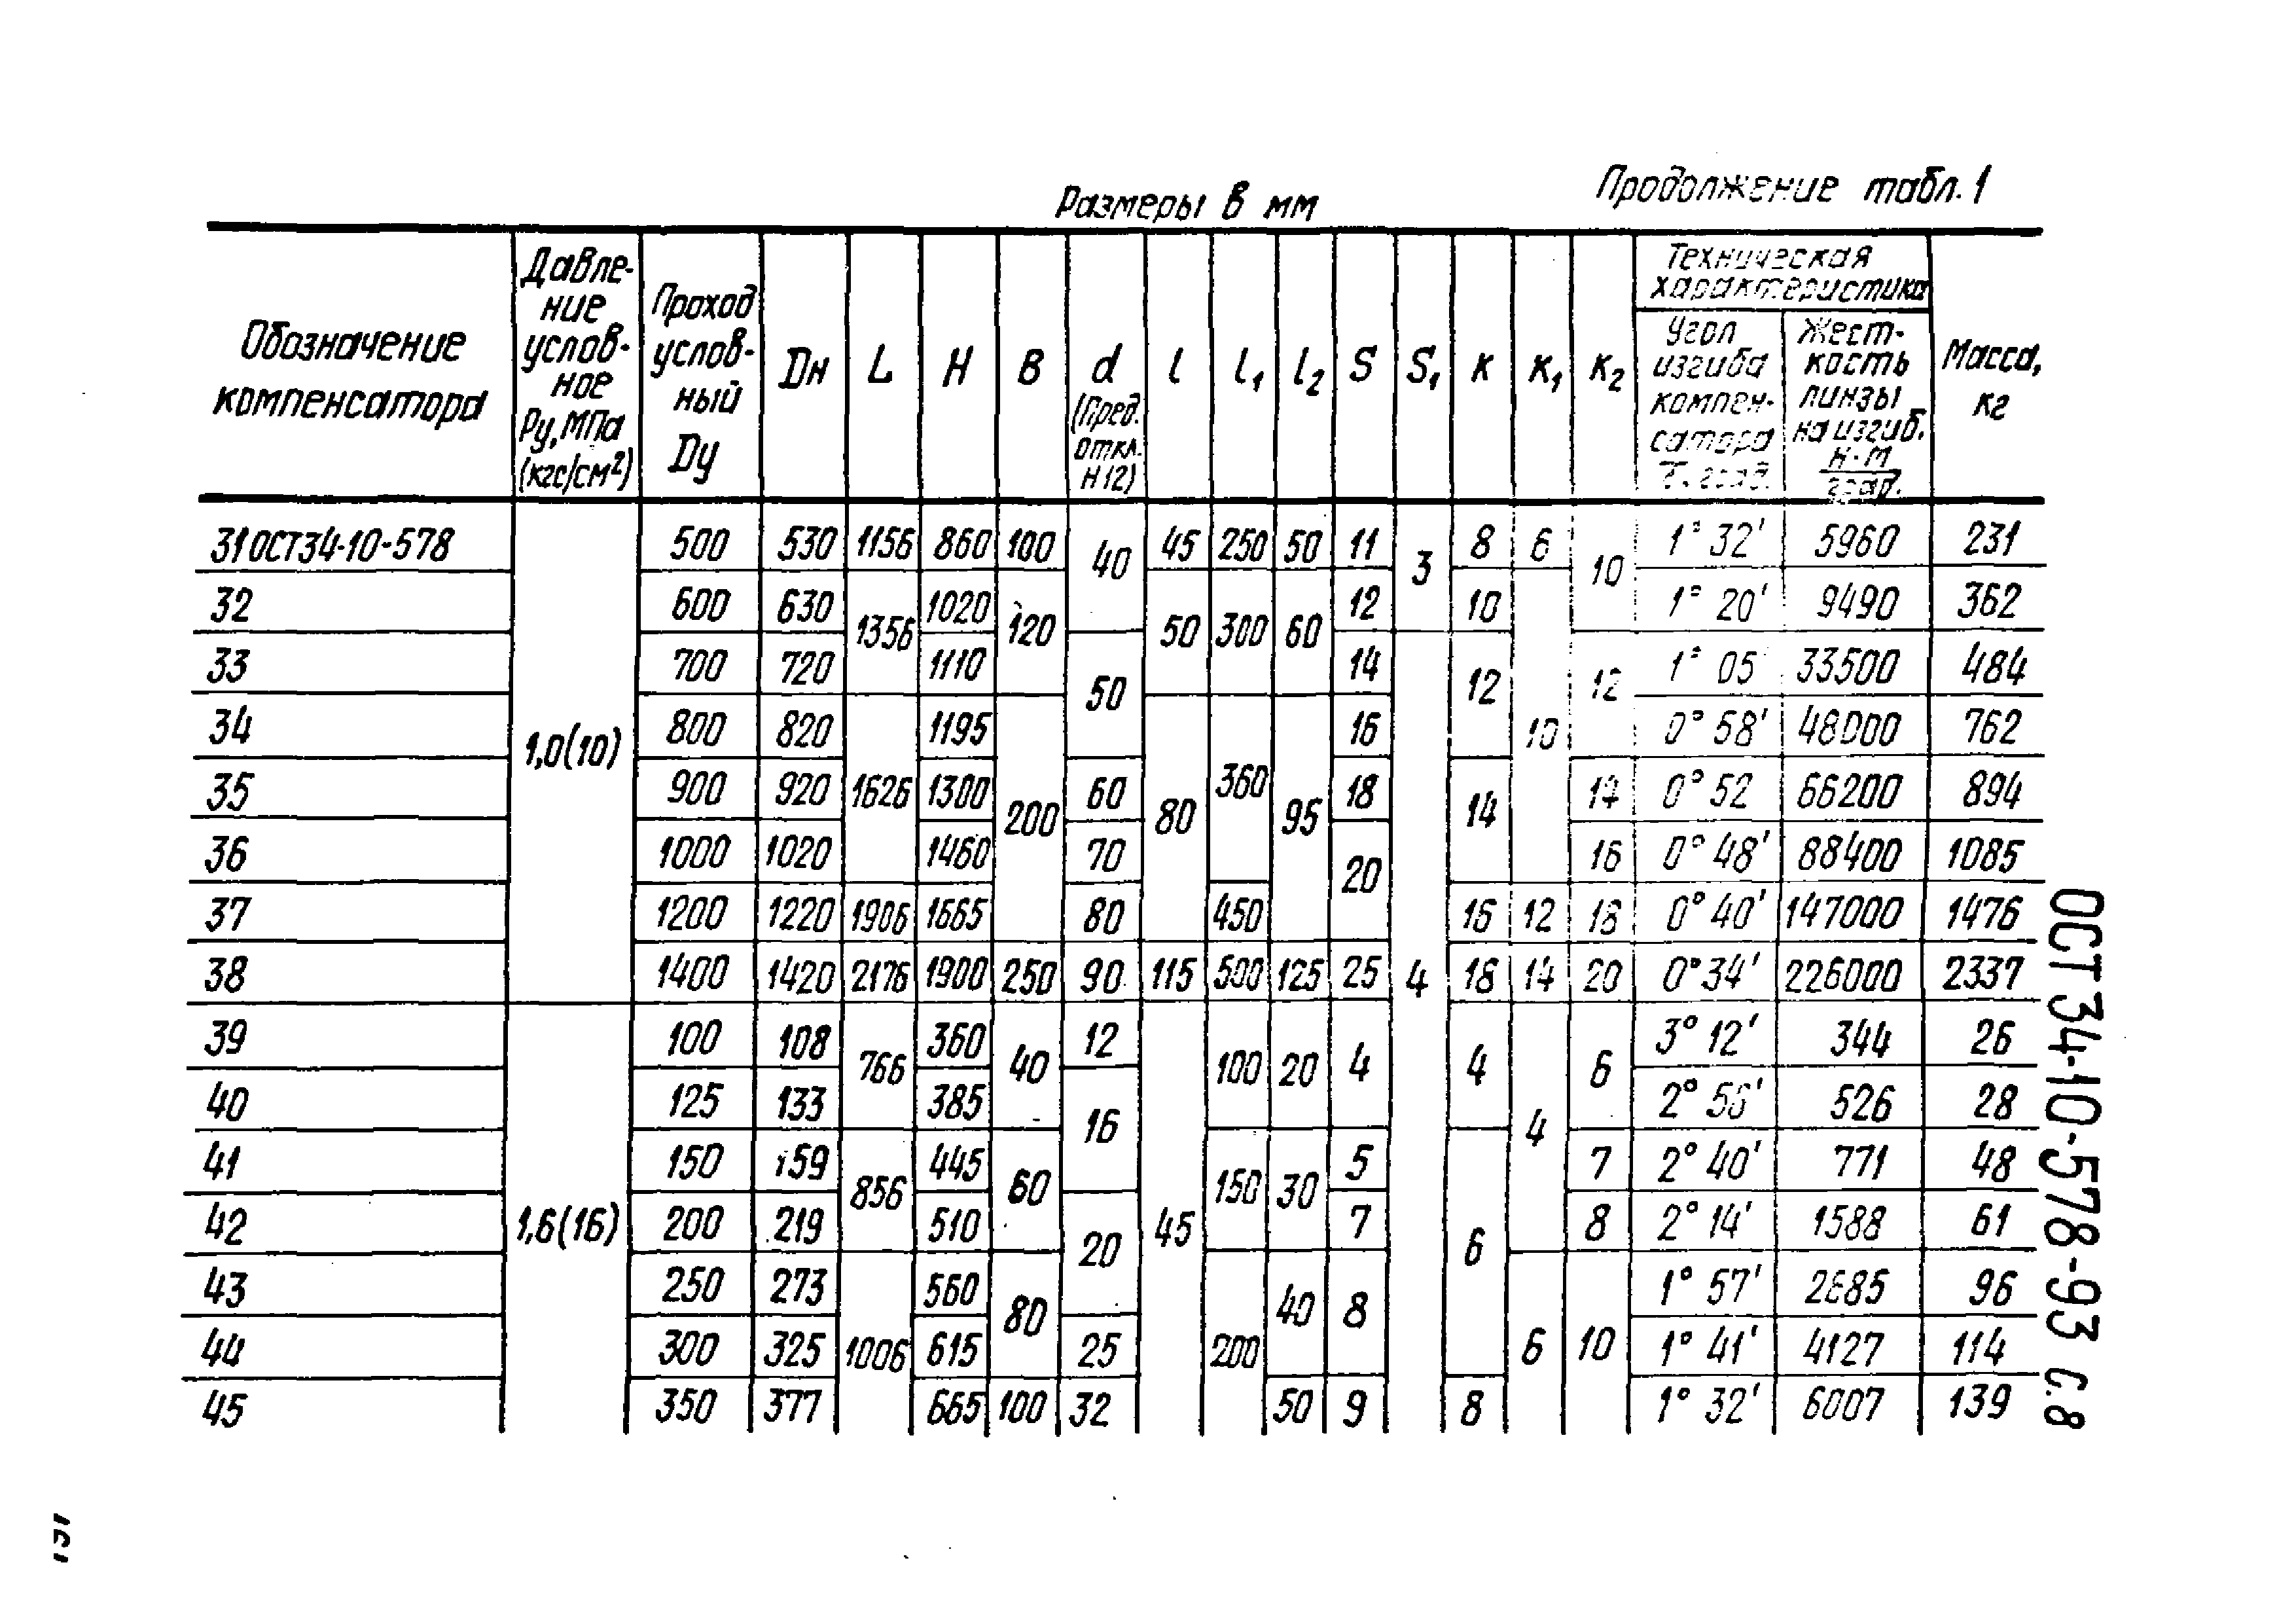 Размеры в мм
Продолжение табл. 1
Обозначение компенсатора
Давле-
ние
услов-
ное
Ру, МПа
(кгс/см²)
Проход
услов-
ный
Dу
Dн
L
H
B
d
(Пред.
откл.
H12)
l
l₁
l₂
S
S₁
K
K₁
K₂
Техническая
характеристика
Угол
изгиба
компен-
сатора
Жест-
кость
линзы
на изгиб.
Н·м
град.
Масса,
кг
31 ОСТ34-10-578 1,0(10) 500 530 1156 860 100 40 45 250 50 11 3 8 6 10 1° 32' 5960 231
32 600 630 1356 1020 120 50 300 60 12 10 10 1° 20' 9490 362
33 700 720 1110 50 14 4 12 12 1° 05 33500 484
34 800 820 1626 1195 200 80 360 95 16 0° 58' 48000 762
35 900 920 1300 60 18 14 14 0° 52 66200 894
36 1000 1020 1460 70 20 16 0° 48' 88400 1085
37 1200 1220 1906 1665 80 450 16 12 18 0° 40' 147000 1476
38 1400 1420 2176 1900 250 90 115 500 125 25 18 14 20 0° 34' 226000 2337
39 1,6(16) 100 108 766 360 40 12 45 100 20 4 4 4 6 3° 12' 344 26
40 125 133 385 16 2° 56' 526 28
41 150 159 856 445 60 150 30 5 6 7 2° 40' 771 48
42 200 219 510 20 7 8 2° 14' 1588 61
43 250 273 1006 560 80 200 40 8 6 10 1° 57' 2685 96
44 300 325 615 25 1° 41' 4127 114
45 350 377 665 100 32 50 9 8 1° 32' 6007 139
ОСТ 34-10-578-93 С.8